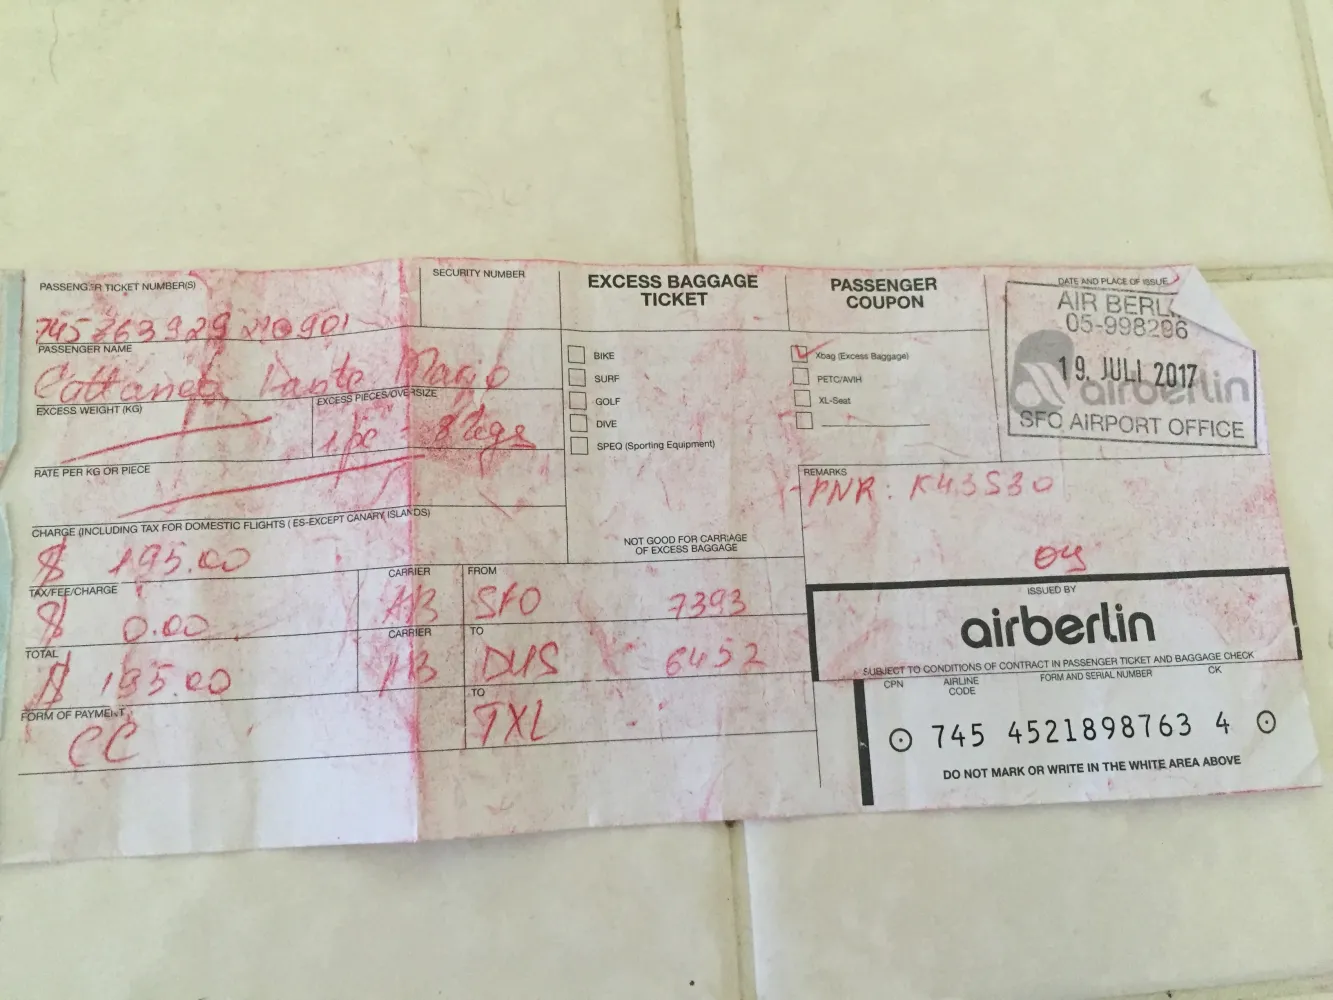 PASSENGER TICKET NUMBER(S)
SECURITY NUMBER
EXCESS BAGGAGE
TICKET
PASSENGER
COUPON
DATE AND PLACE OF ISSUE
AIR BERL
05-998296
19. JULI 2017
airberlin
SFO AIRPORT OFFICE
PASSENGER NAME
Cattaneo Mario
EXCESS WEIGHT (KG)
EXCESS PIECES/OVERSIZE
1 pc
RATE PER KG OR PIECE
CHARGE (INCLUDING TAX FOR DOMESTIC FLIGHTS (ES-EXCEPT CANARY ISLANDS)
$ 195.00
TAX/FEE/CHARGE
$ 0.00
TOTAL
$ 195.00
FORM OF PAYMENT
CC
CARRIER
AB
CARRIER
AB
FROM
SFO 7393
TO
DUS 6452
TO
TXL
BIKE
SURF
GOLF
DIVE
SPEQ (Sporting Equipment)
NOT GOOD FOR CARRIAGE
OF EXCESS BAGGAGE
Xbag (Excess Baggage)
PETC/AVIH
XL-Seat
REMARKS
PNR: K43S30
ISSUED BY
airberlin
SUBJECT TO CONDITIONS OF CONTRACT IN PASSENGER TICKET AND BAGGAGE CHECK
CPN AIRLINE CODE FORM AND SERIAL NUMBER CK
745 4521898763 4
DO NOT MARK OR WRITE IN THE WHITE AREA ABOVE